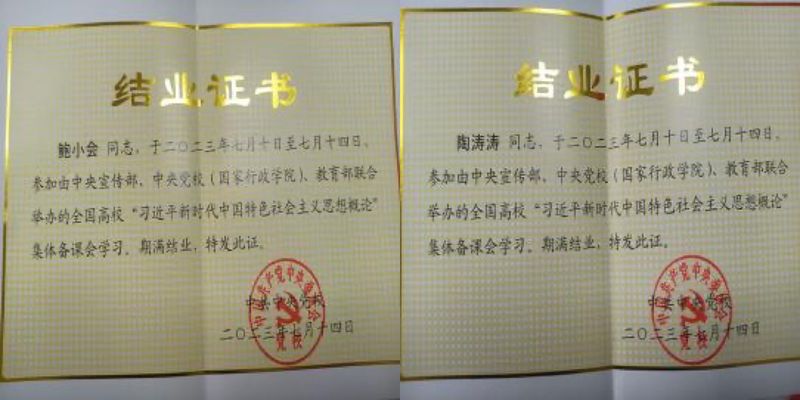 结业证书
鲍小会 同志，于二〇二三年七月十日至七月十四日，
参加由中央宣传部、中央党校（国家行政学院）、教育部联合
举办的全国高校“习近平新时代中国特色社会主义思想概论”
集体备课会学习。期满结业，特发此证。
中共中央党校
二〇二三年七月十四日
中国共产党中央委员会
党校
结业证书
陶涛涛 同志，于二〇二三年七月十日至七月十四日，
参加由中央宣传部、中央党校（国家行政学院）、教育部联合
举办的全国高校“习近平新时代中国特色社会主义思想概论”
集体备课会学习。期满结业，特发此证。
中共中央党校
二〇二三年七月十四日
中国共产党中央委员会
党校